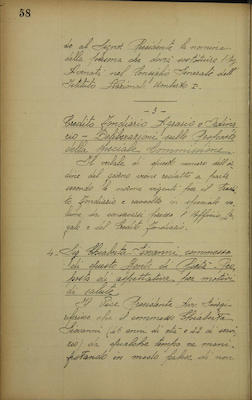 58
do al Signor Presidente la nomina
della persona che dovrà sostituire l'Avv.
nel Consiglio Generale dell'
Istituto Nazionale Umberto I.
- 3 -
Credito Fondiario Agrario e
- Deliberazioni sulle Proposte
della Speciale Commissione.
Il verbale di questo numero dell'or
dine del giorno viene redatto a parte
secondo le norme vigenti per il Credi
to Fondiario e raccolto in speciale vo
lume da conservarsi presso l'Ufficio Le
gale e del Credito Fondiario.
4. - Sig. Giovanni commesso
di questo Monte di Pietà - Pro
posta di per motivi
di salute
Il Vice Presidente Avv. Luigi
riferisce che il commesso
Giovanni (46 anni di età e 22 di servi
zio) da qualche tempo va mani
festando in modo tale di non